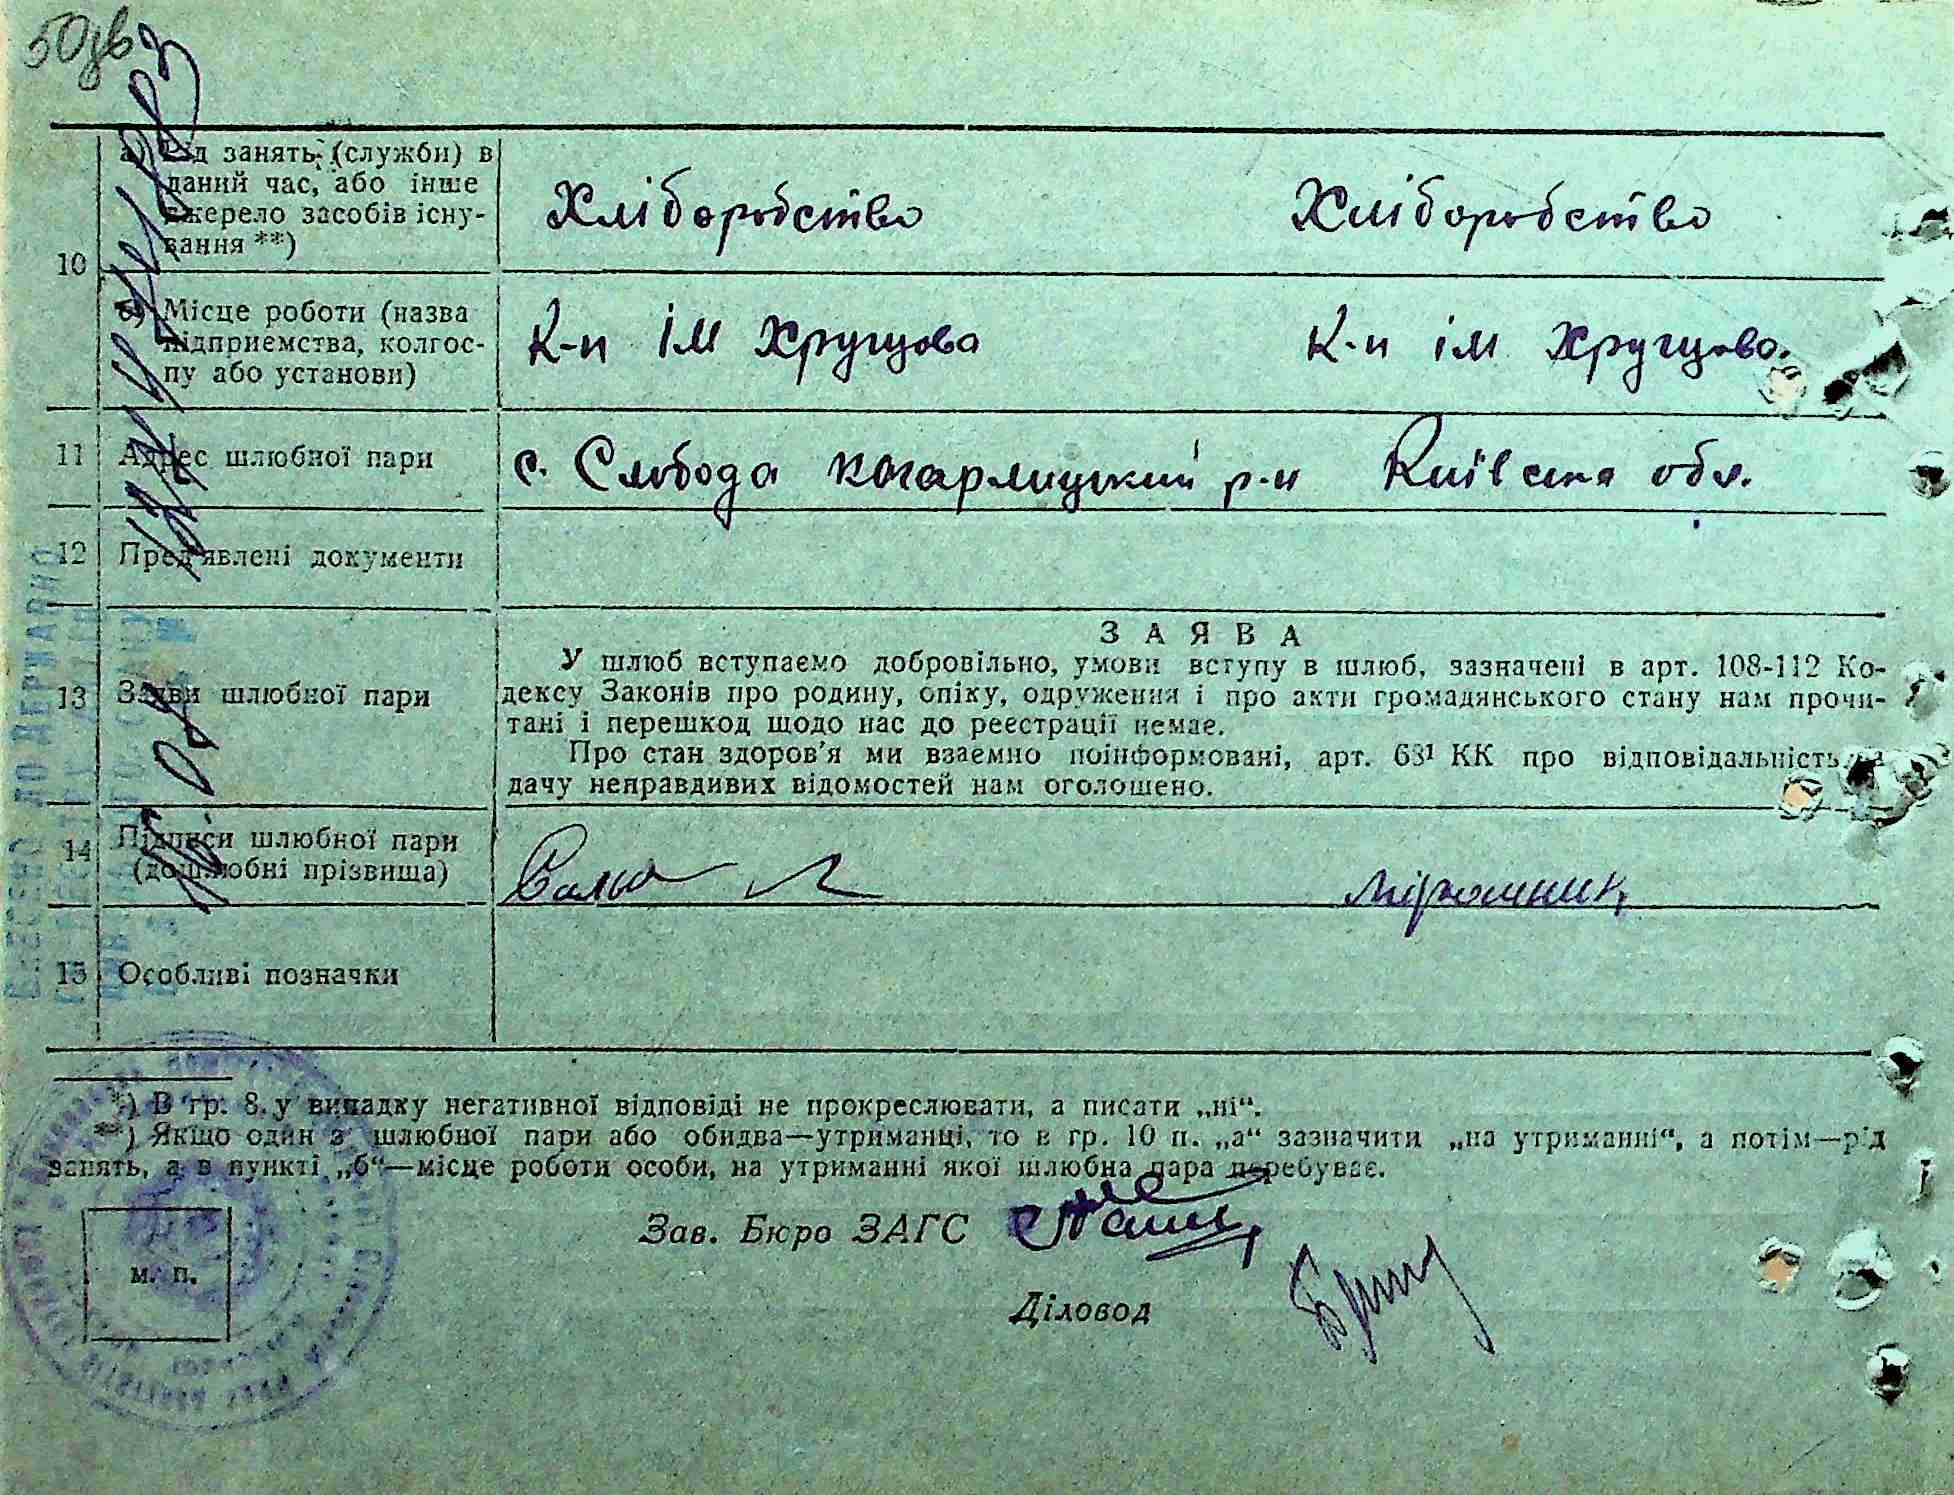 50зв
10
а) Рід занять (служби) в
даний час, або інше
джерело засобів існу-
вання **)
Хліборобство Хліборобство
б) Місце роботи (назва
підприємства, колгос-
пу або установи)
К-п ім Хрущова К-п ім Хрущова.
11 Адрес шлюбної пари с. Слобода Кагарлицький р-н Київська обл.
12 Пред'явлені документи
13 Заяви шлюбної пари
ЗАЯВА
У шлюб вступаємо добровільно, умови вступу в шлюб, зазначені в арт. 108-112 Ко-
дексу Законів про родину, опіку, одруження і про акти громадянського стану нам прочи-
тані і перешкод щодо нас до реєстрації немає.
Про стан здоров'я ми взаємно поінформовані, арт. 68¹ КК про відповідальність за
дачу неправдивих відомостей нам оголошено.
14 Підписи шлюбної пари
(дошлюбні прізвища)
Мірошник
15 Особливі позначки
*) В гр. 8 у випадку негативної відповіді не прокреслювати, а писати „ні“.
**) Якщо один з шлюбної пари або обидва—утриманці, то в гр. 10 п. „а“ зазначити „на утриманні“, а потім—рід
занять, а в пункті „б“—місце роботи особи, на утриманні якої шлюбна пара перебуває.
Зав. Бюро ЗАГС
м. п.
Діловод
ВНЕСЕНО ДО ДЕРЖАВНО